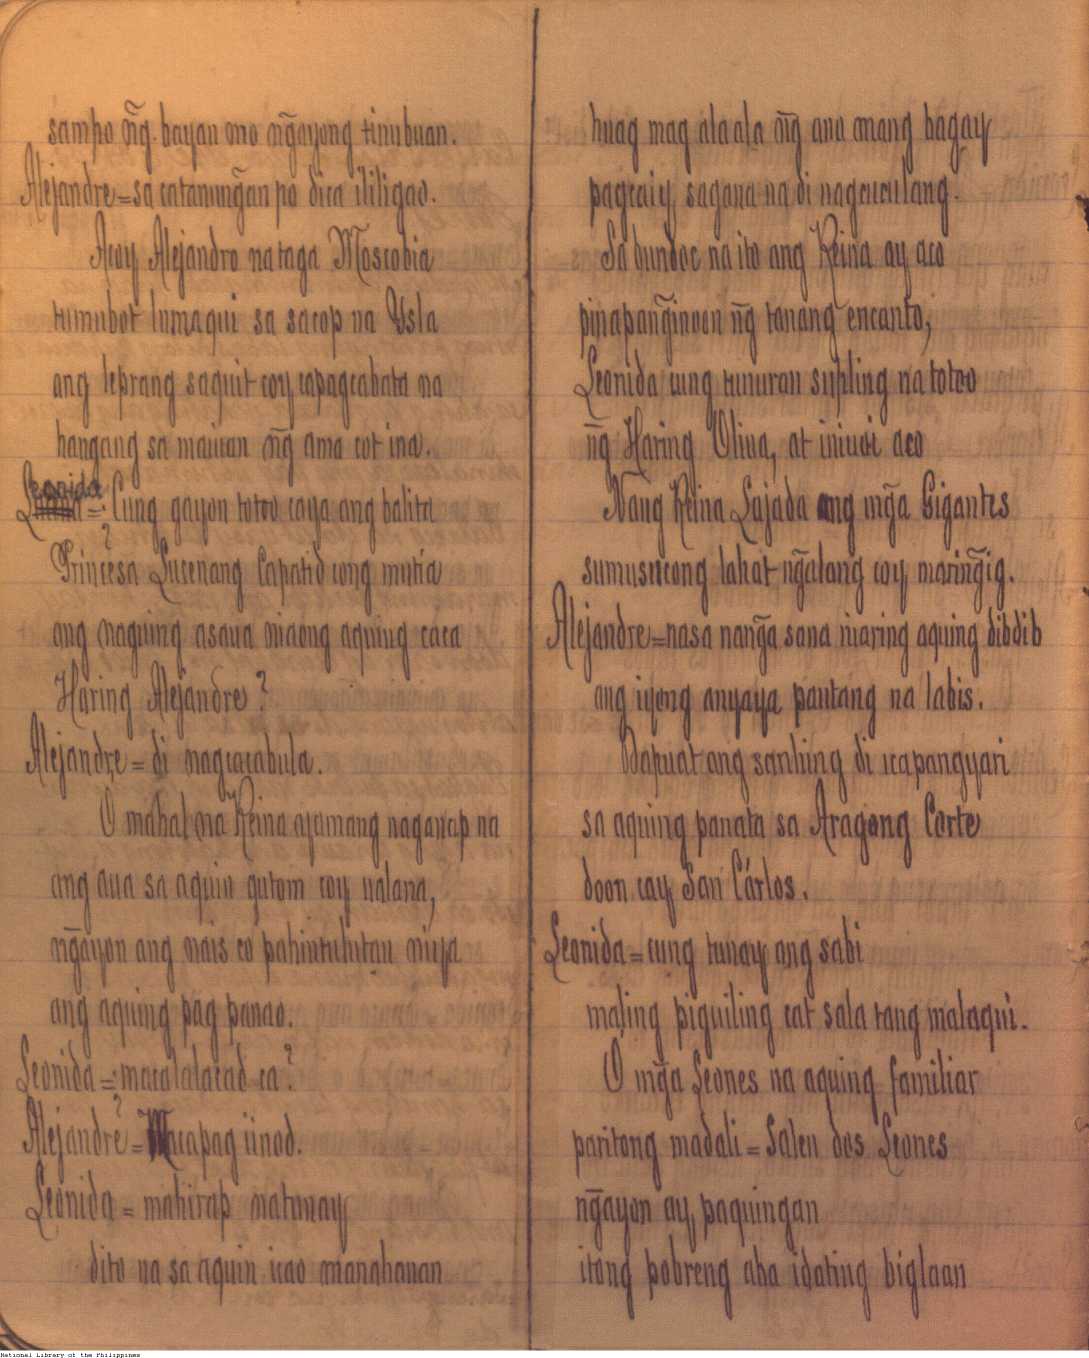 sampo n͠g bayan mo n͠gayong tinubuan.
Alejandre=sa catanun͠gan po dica ililigao.
Acoy Alejandro na taga Moscobia
tumubot lumaqui sa sacop na Ysla
ang leprang saquit coy capagcabata na
hangang sa maiuan n͠g ama cot ina.
Leonida =¿Cung gayon totoo caya ang balita
Princesa Lucenang Capatid cong mutia
ang naguing asaua niaong aquing caca
Haring Alejandre?
Alejandre = di nagcacabula.
O mahal na Reina ayamang naganap na
ang aua sa aquin gutom coy nalana,
n͠gayon ang nais co pahintulutan niya
ang aquing pag panao.
Leonida =¿macalalacad ca?
Alejandre = Macapag iinod.
Leonida = mahirap matunay
dito na sa aquin icao manahanan
huag mag alaala n͠g ano mang bagay
pagcaiy sagana na di nagcuculang.
Sa bundoc na ito ang Reina ay aco
pinapan͠ginoon n͠g tanang encanto,
Leonida cung tunuran supling na totoo
n͠g Haring Oliua, at iniuoi aco
Nang Reina Lajada ang m͠ga Gigantes
sumusucong lahat n͠galang coy marin͠gig.
Alejandre=nasa nan͠ga sana niaring aquing dibdib
ang iyong anyaya pautang na labis.
Dapuat ang sanhing di icapangyari
sa aquing panata sa Aragong Corte
doon cay San Cárlos.
Leonida=cung tunay ang sabi
maling piguiling cat sala tang malaqui.
O m͠ga Leones na aquing familiar
paritong madali = Salen dos Leones
n͠gayon ay paquingan
itong pobreng aba idating biglaan
National Library of the Philippines